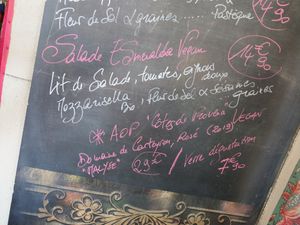 Fleur de Sel & graines ..... Pastèque
14€90
Salade Esmeralda Vegan
14€90
Lit de Salade, Tomates, oignons doux
Mozzarisella Bio, Fleur de Sel & Sésames graines
* AOP "Côtes de Provence VEGAN
Domaine de Carteyron, Rosé (2019)
"MALYSE" 29€ / Verre dégustation
7€90